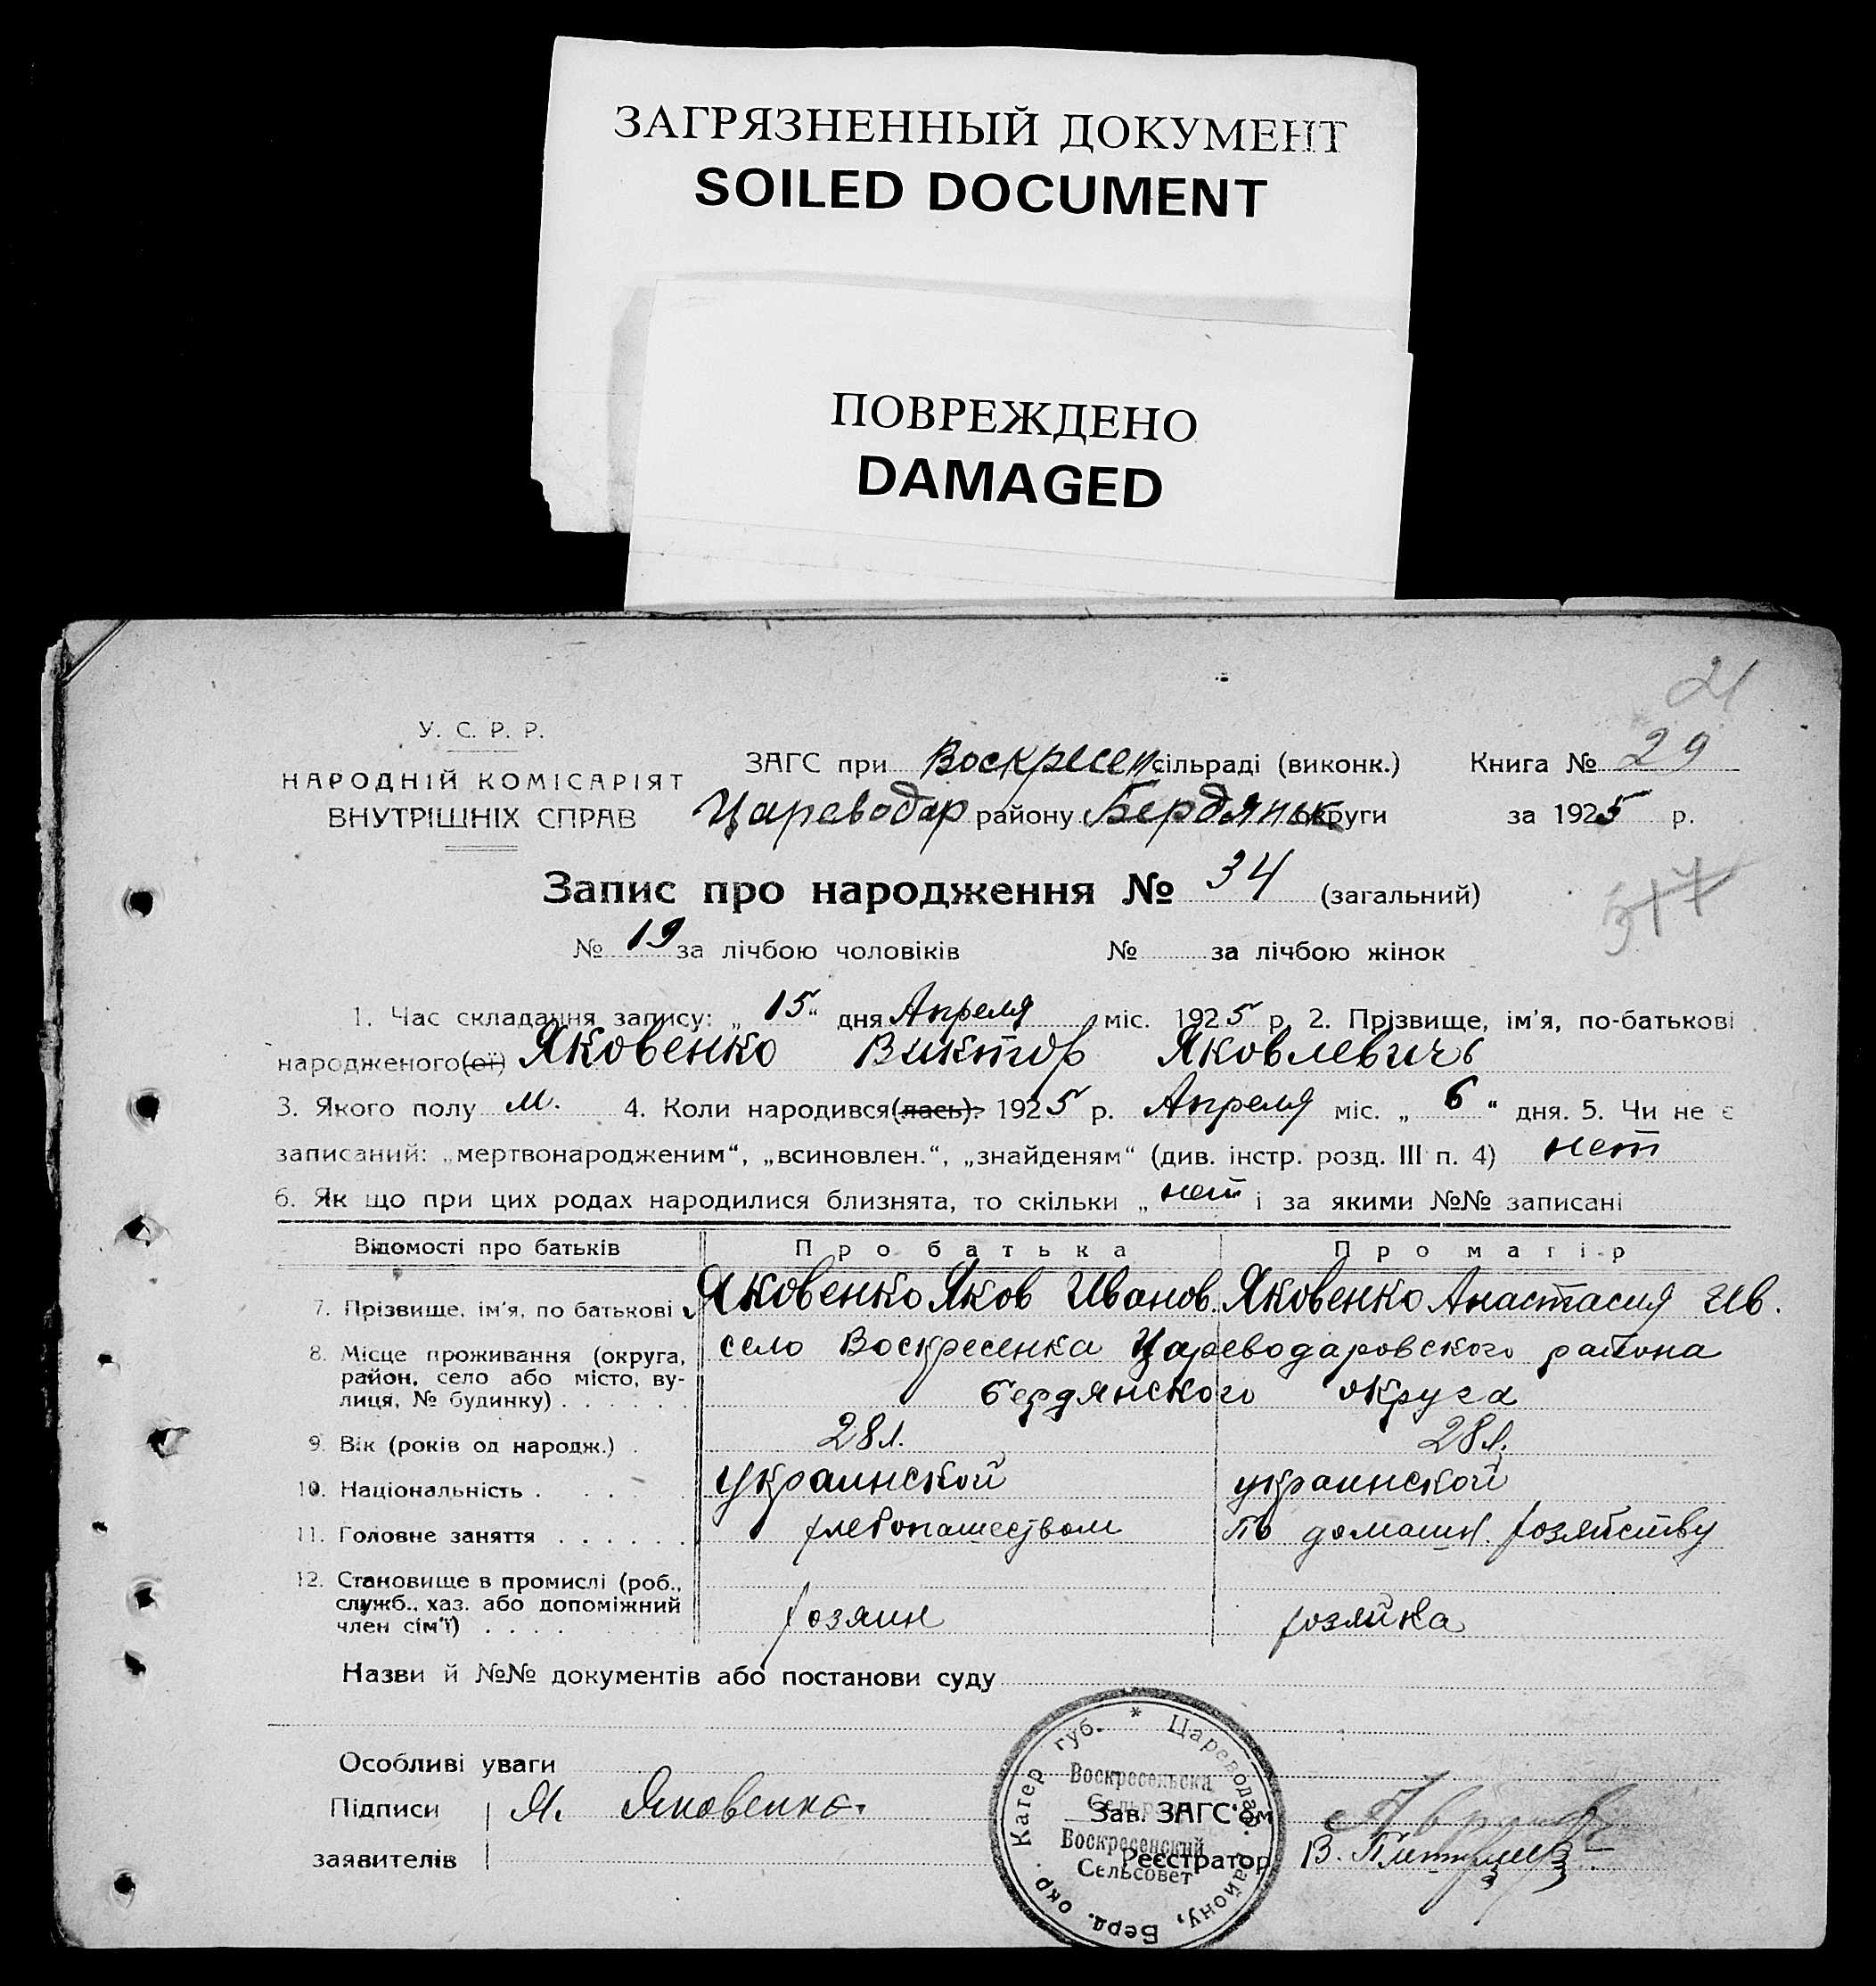 ЗАГРЯЗНЕННЫЙ ДОКУМЕНТ
SOILED DOCUMENT
ПОВРЕЖДЕНО
DAMAGED
21
У. С. Р. Р.
НАРОДНІЙ КОМІСАРІЯТ
ВНУТРІШНІХ СПРАВ
ЗАГС при Воскресен сільраді (виконк.) Книга № 29
Цареводар району Бердянськ округи за 1925 р.
Запис про народження № 34 (загальний)
517
№ 19 за лічбою чоловіків № за лічбою жінок
1. Час складання запису: „ 15 “ дня Апреля міс. 1925 р. 2. Прізвище, ім'я, по-батькові
народженого(ої) Яковенко Виктор Яковлевичъ
3. Якого полу м. 4. Коли народився(лась): 1925 р. Апреля міс. „ 6 “ дня. 5. Чи не є
записаний: „мертвонародженим“, „всиновлен.“, „знайденям“ (див. інстр. розд. III п. 4) нет
6. Як що при цих родах народилися близнята, то скільки „ нет і за якими №№ записані
Відомості про батьків Про батька Про матір
7. Прізвище, ім'я, по батькові Яковенко Яков Иванов. Яковенко Анастасия Ив.
8. Місце проживання (округа, село Воскресенка Цареводаровского района
район, село або місто, ву-
лиця, № будинку) . . . . . . Бердянского округа
9. Вік (років од народж.) . 28 л. 28 л.
10. Національність . . . . украинской украинской
11. Головне заняття . . . . . . хлебопашеством по домашн. хозяйству
12. Становище в промислі (роб.,
служб., хаз. або допоміжний
член сім'ї) . . . . хозяин хозяйка
Назви й №№ документів або постанови суду
Особливі уваги
Підписи Я. Яковенко.
заявителів
Зав. ЗАГС'ом
Реєстратор В.
* Цареводар. району, Берд. окр. Катер губ.
Воскресеньска
Сельрада
Воскресенский
Сельсовет